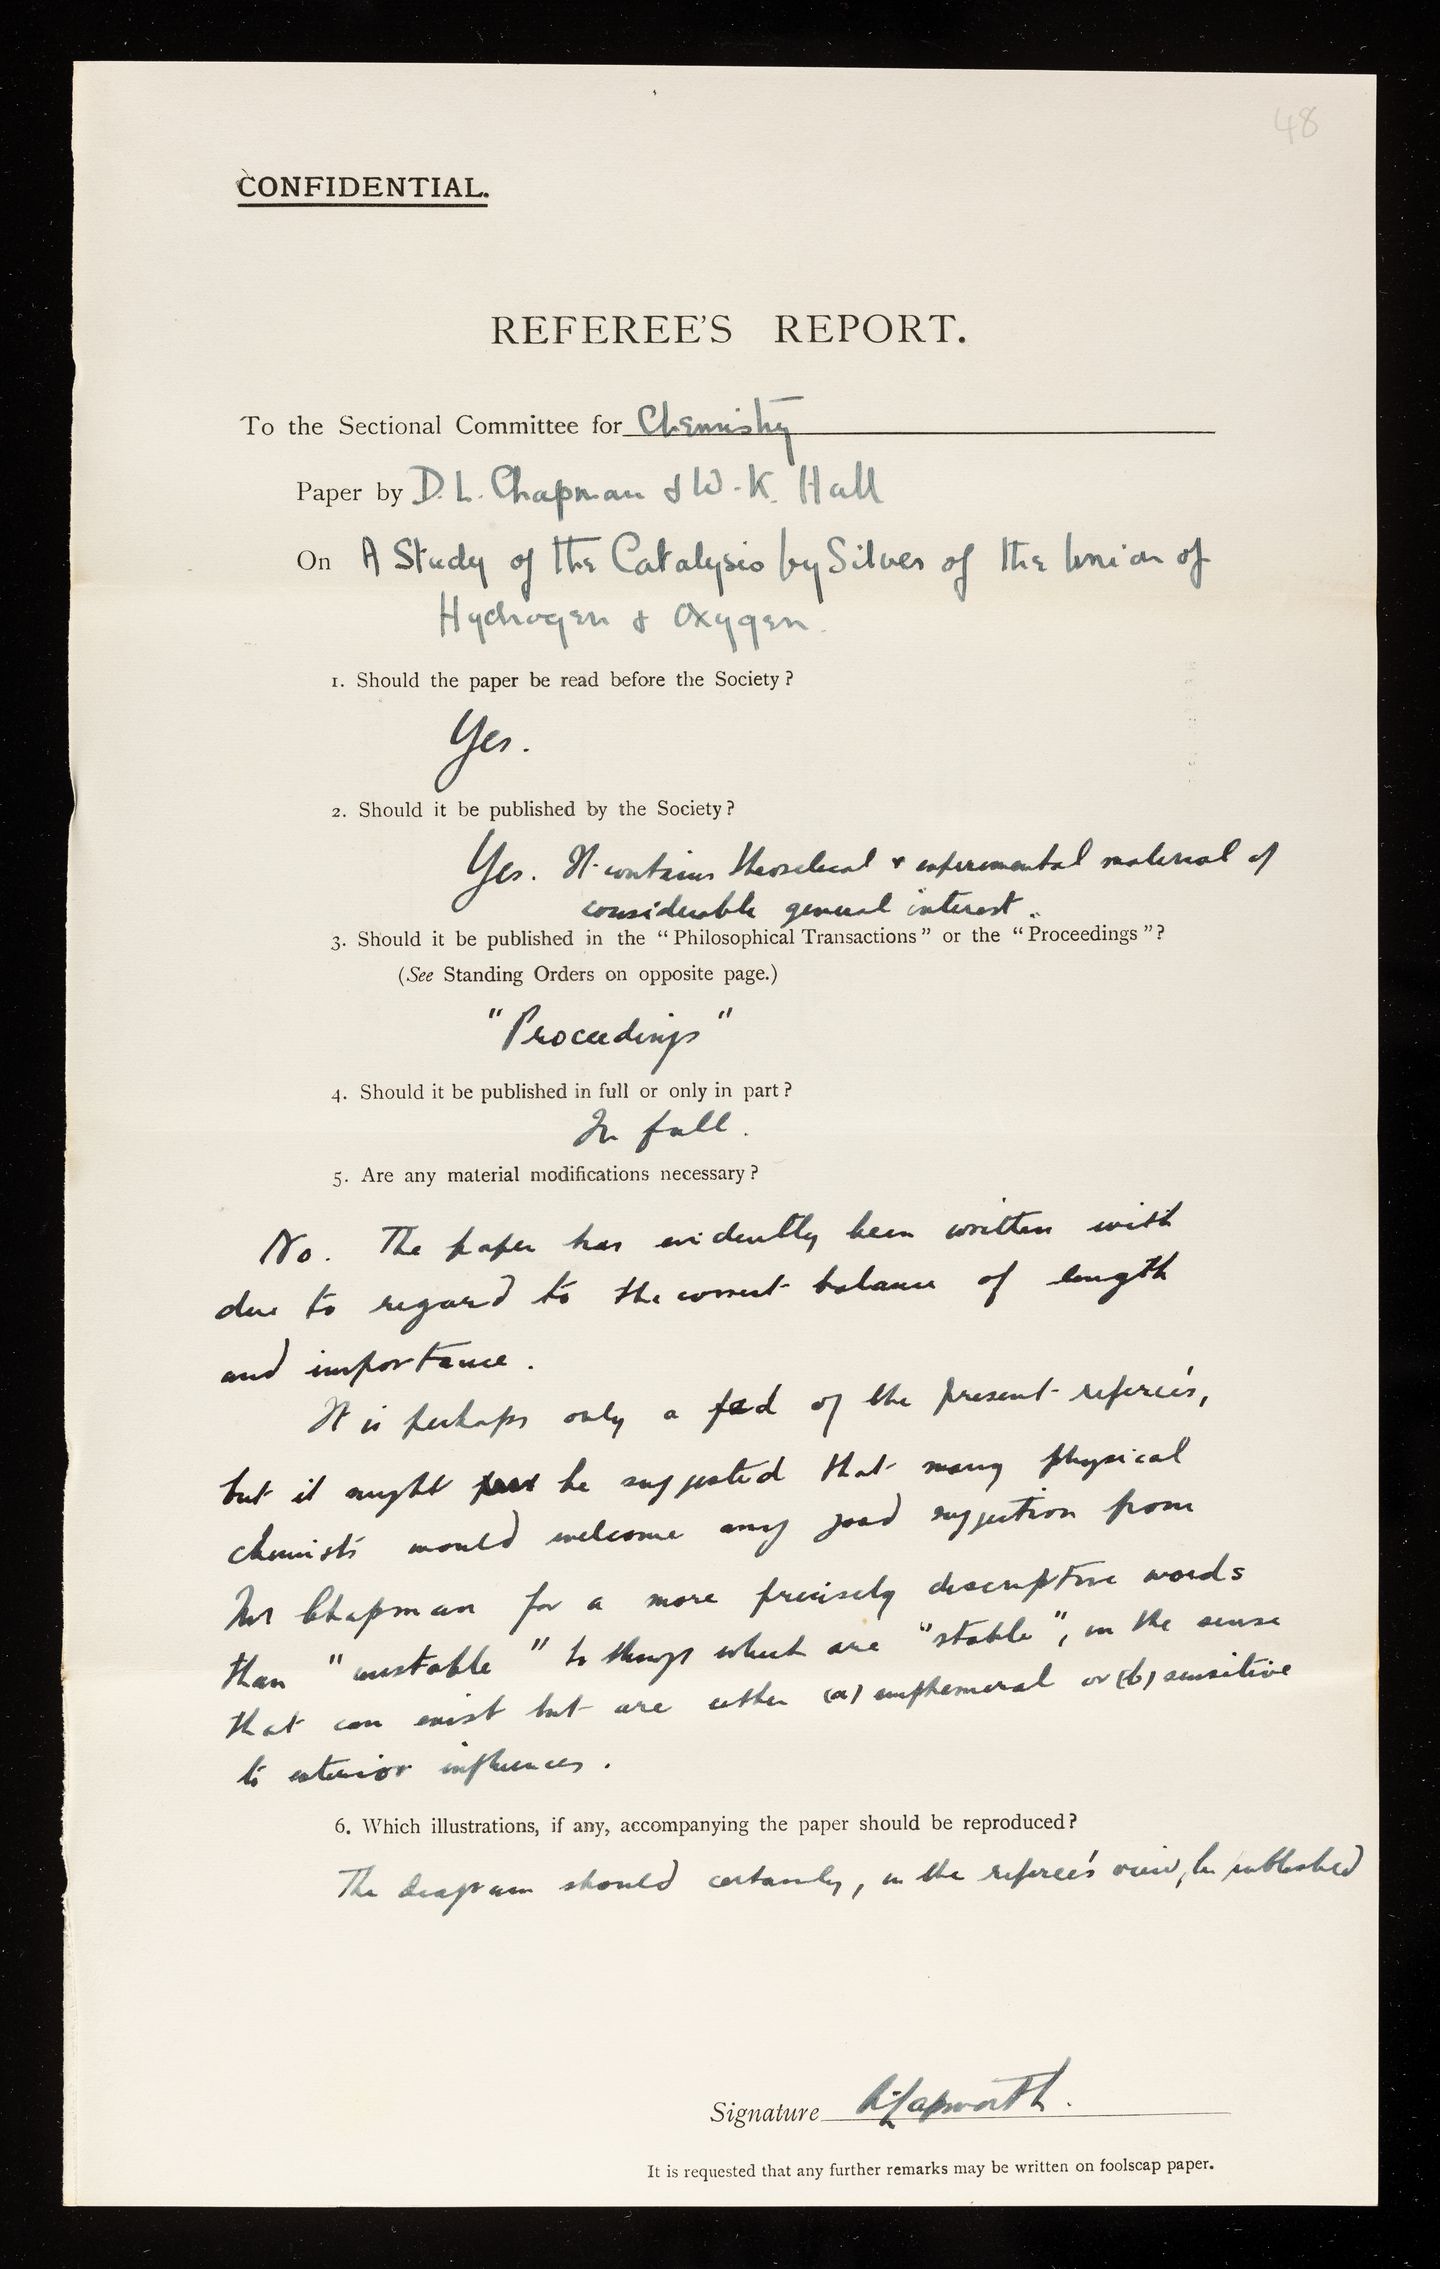 48
CONFIDENTIAL.
REFEREE'S REPORT.
To the Sectional Committee for Chemistry
Paper by D. L. Chapman & W. K. Hall
On A Study of the Catalysis by Silver of the Union of
Hydrogen & Oxygen.
1. Should the paper be read before the Society?
Yes.
2. Should it be published by the Society?
Yes. It contains theoretical & experimental material of
considerable general interest.
3. Should it be published in the "Philosophical Transactions" or the "Proceedings"?
(See Standing Orders on opposite page.)
"Proceedings"
4. Should it be published in full or only in part?
In full.
5. Are any material modifications necessary?
No. The paper has evidently been written with
due to regard to the correct balance of length
and importance.
It is perhaps only a fad of the present referee's,
but it might be suggested that many physical
chemists would welcome any good suggestion from
Mr Chapman for a more precisely descriptive words
than "unstable" to things which are "stable", in the sense
that can exist but are either (a) emphemeral or (b) sensitive
to exterior influences.
6. Which illustrations, if any, accompanying the paper should be reproduced?
The diagram should certainly, in the referee's view, be published
Signature A. Lapworth.
It is requested that any further remarks may be written on foolscap paper.